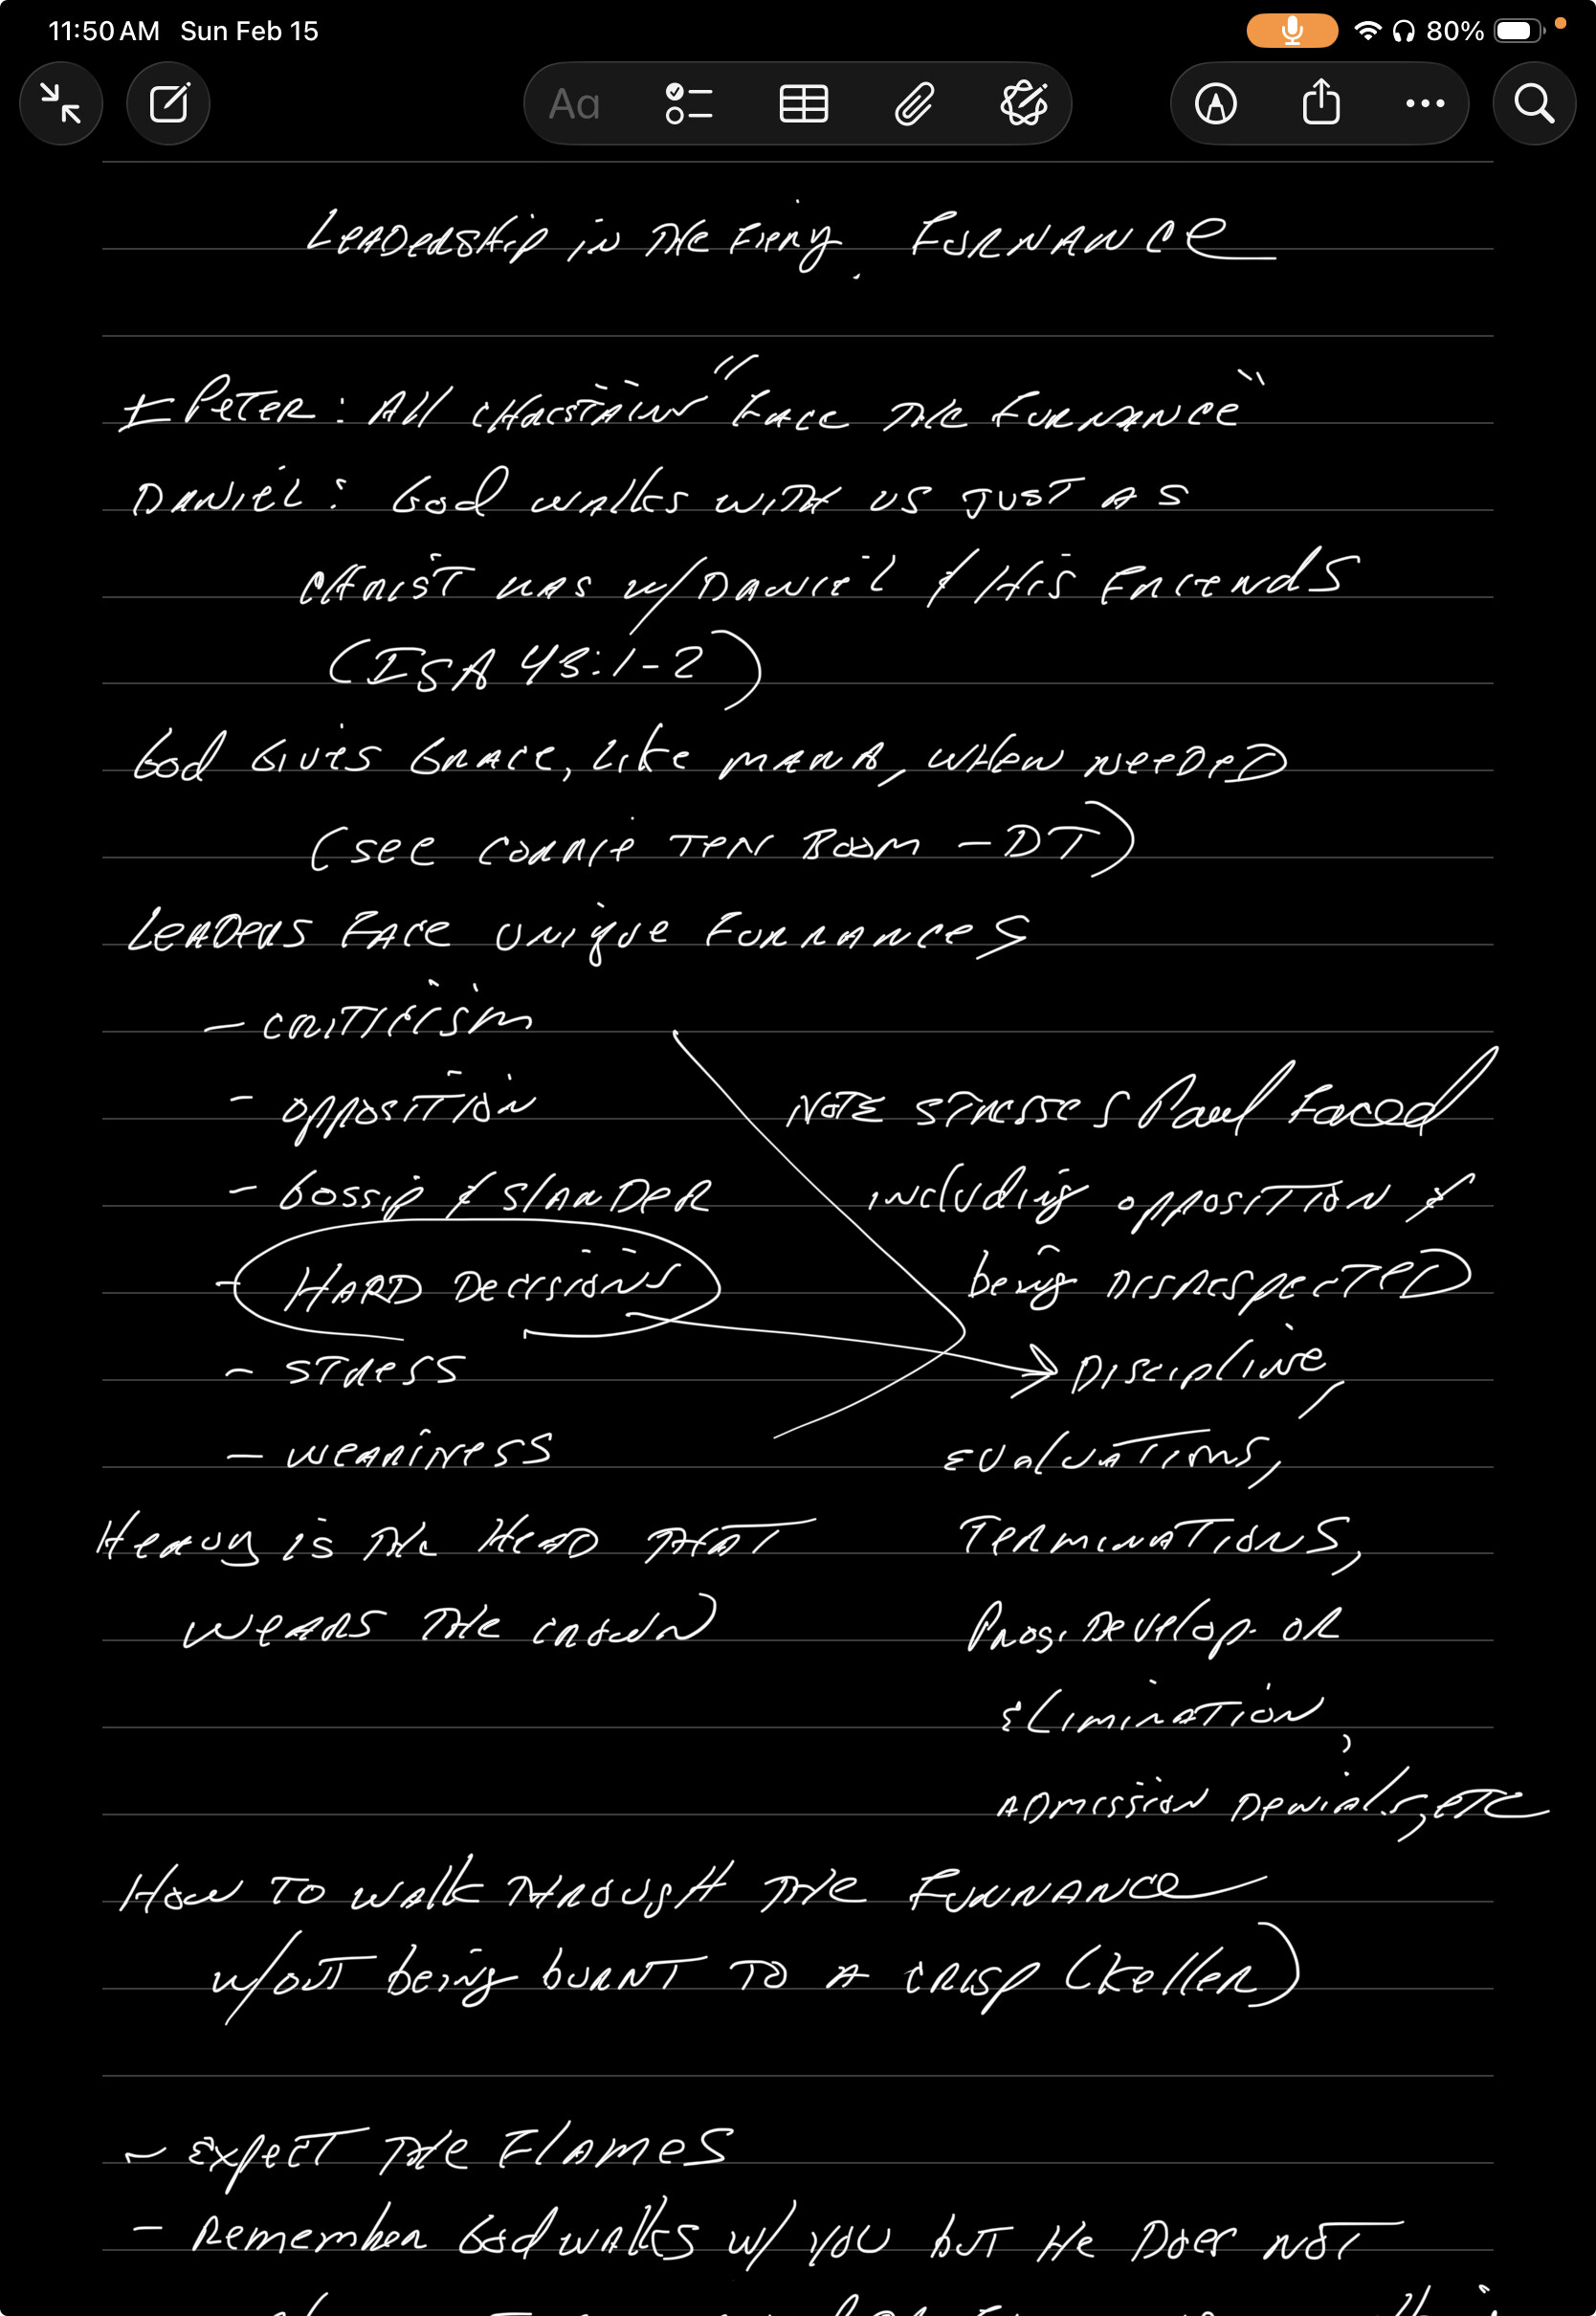 11:50 AM Sun Feb 15
80%
Aa
Leadership in the Fiery Furnance
I Peter: All Christains "Face the Furnance"
Daniel: God walks with us just as
Christ was w/Daniel & His Friends
(ISA 43:1-2)
God Gives Grace, like mana, when needed
(see Corrie Ten Boom - DT)
Leaders Face unique Furnances
- criticism
- opposition
- Gossip & Slander
- Hard Decisions
- stress
- weariness
Heavy is the Head that
wears the crown
Note stresses Paul Faced
including opposition &
being disrespected
Discipline,
evaluations,
Terminations,
Prog. Develop. or
elimination,
Admission Denials, etc
How to walk through the Furnance
w/out being burnt to a crisp (Keller)
- Expect the Flames
- Remember God walks w/ you but He Does not